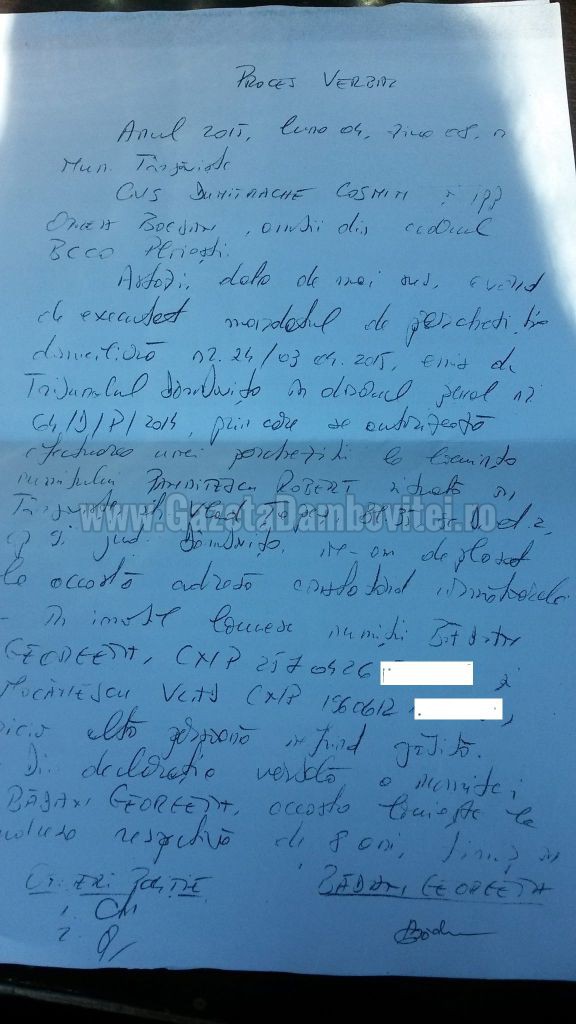 PROCES VERBAL
Anul 2015, luna 04, ziua 08, în
Mun. Târgoviște
CMS DUMITRACHE COSMIN și IPP
BOGDAN, ofițeri din cadrul
BCCO Ploiești.
Astăzi, data de mai sus, având
de executat mandatul de percheziție
domiciliară nr. 24/03.04.2015, emis de
Tribunalul Dâmbovița în dosarul penal nr.
64/D/P/2014, prin care se autorizează
efectuarea unei percheziții la locuința
numitului ROBERT situată în
www.GazetaDambovitei.ro
Târgoviște, Vlad Țepeș, sc.
jud. Dâmbovița, ne-am deplasat
la această adresă constatând următoarele:
- În imobil locuiesc numiții
GEORGETA, CNP 2570426 și
VLAD CNP 1560612 ,
nicio altă persoană nefiind găsită.
Din declarația verbală a numitei
BĂDĂNI GEORGETA, aceasta locuiește la
adresa respectivă de 8 ani,
OFIȚERI POLIȚIE BĂDĂNI GEORGETA
1.
2.